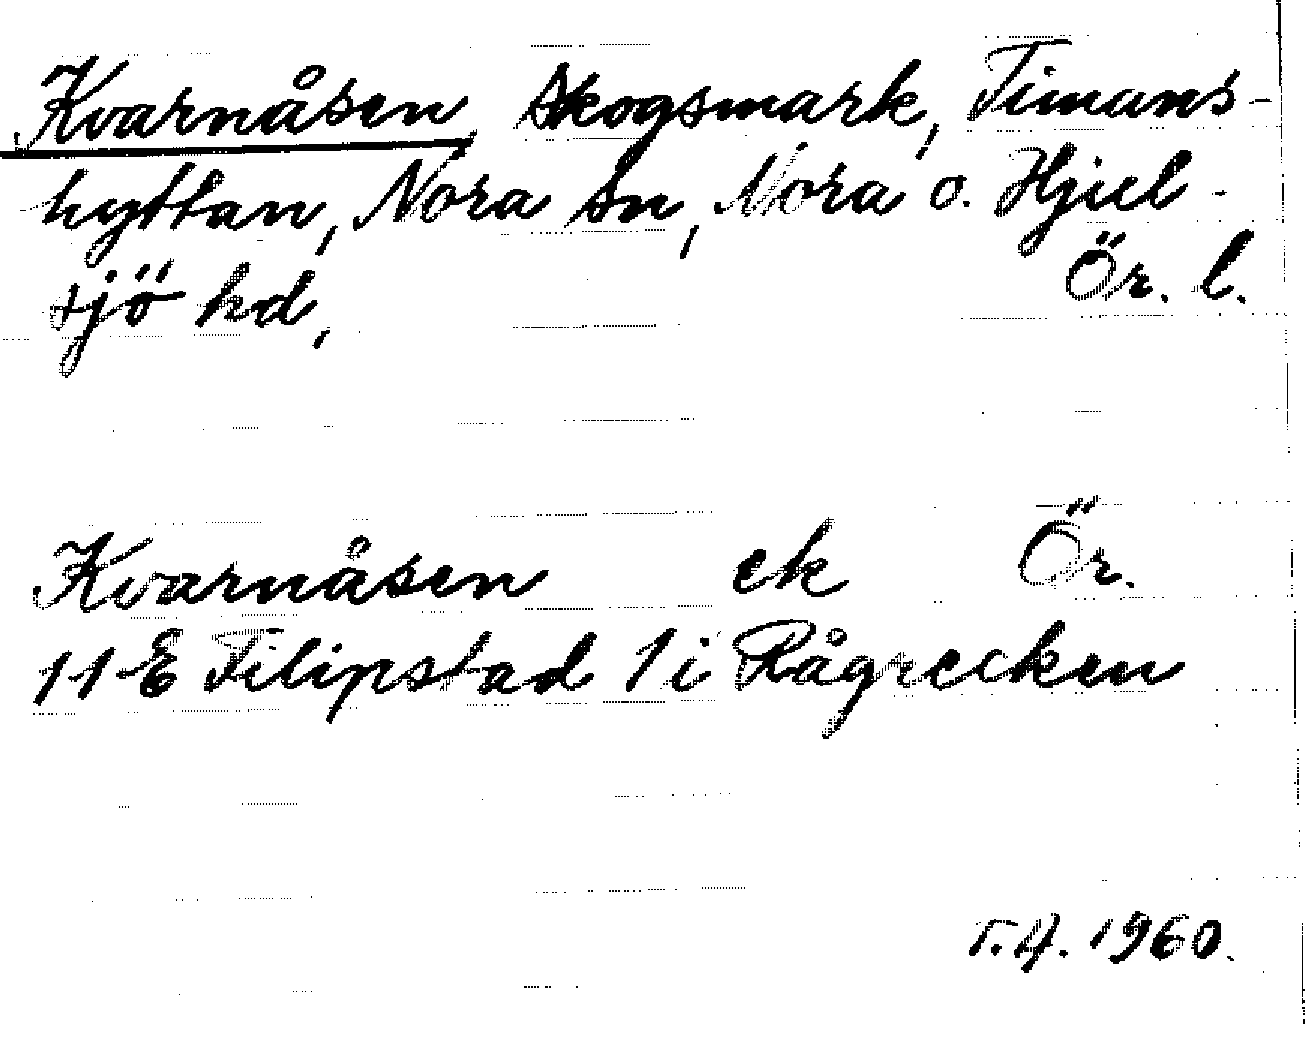 Kvarnåsen, Skogsmark, Timans-
hyttan, Nora sn, Nora o. Hjul-
sjö hd, Ör. l.
Kvarnåsen ek Ör.
11 E Filipstad 1 i Rågrecken
T.A. 1960.